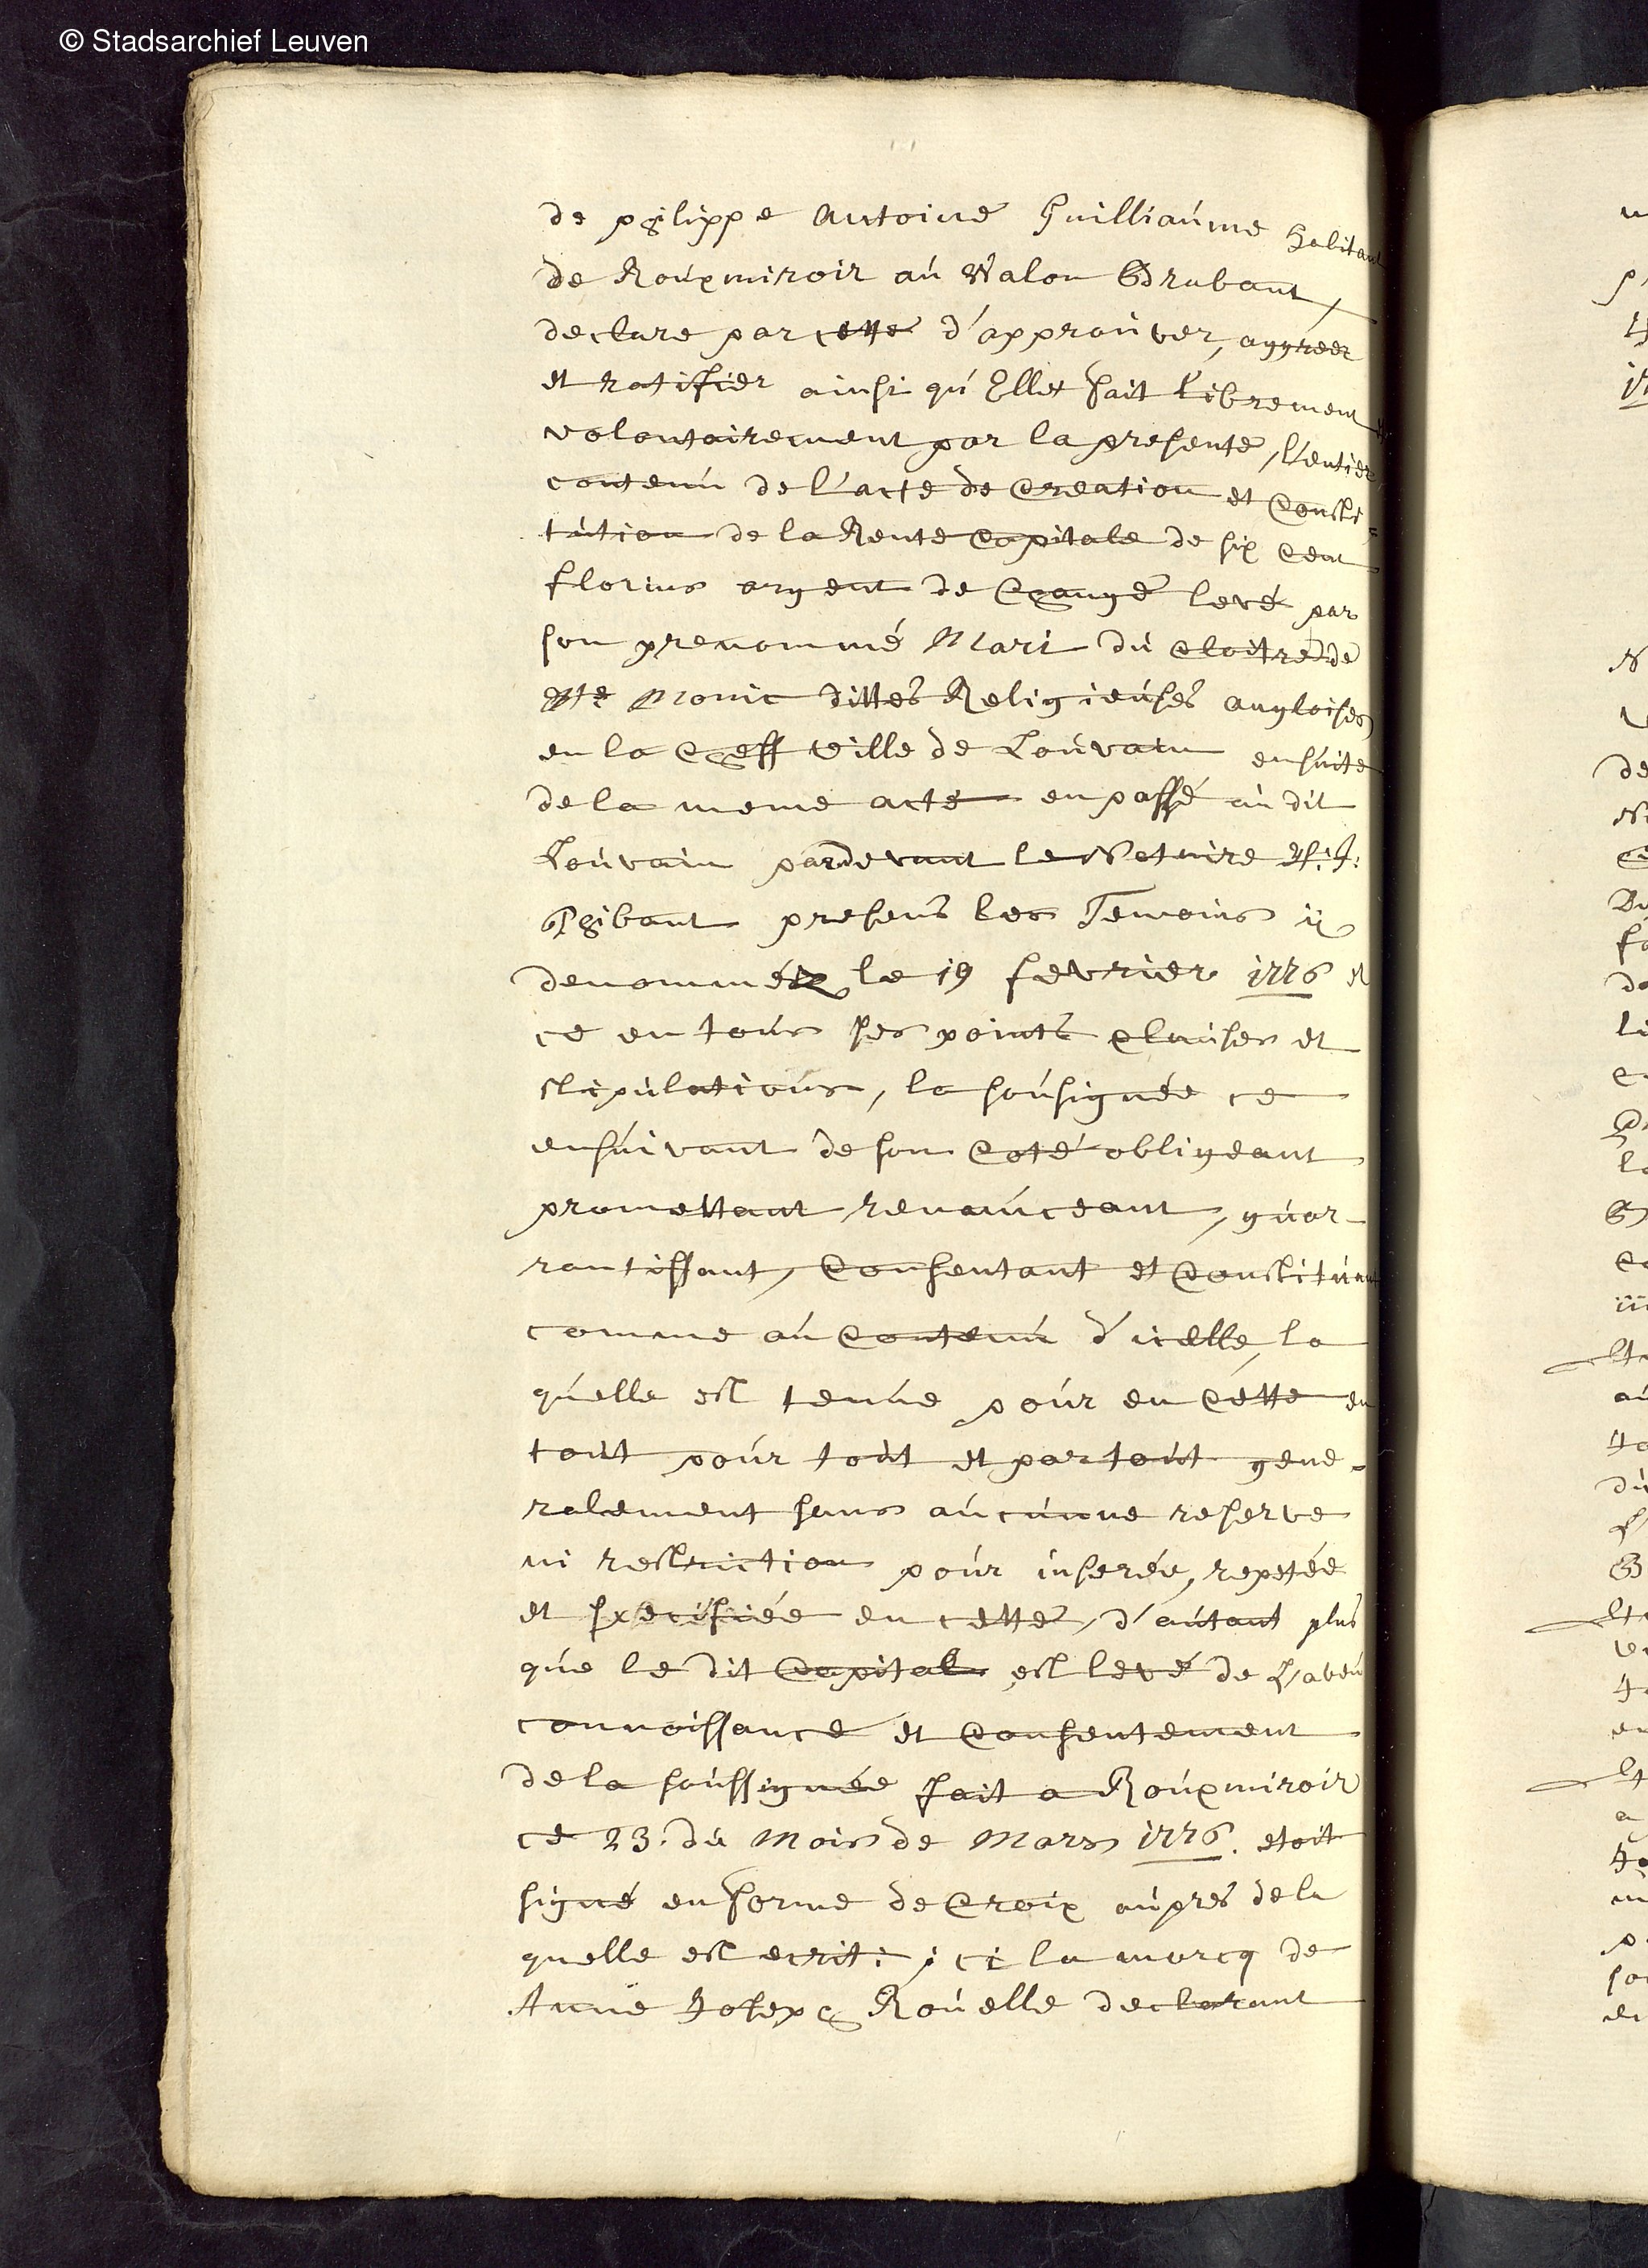 © Stadsarchief Leuven
de philippe Antoine Guilliaúme habitant
de Roúxmiroir aú Walon Brabant,
declare par cette d'approuver, aggreer
et ratifier ainsi qú'Elle fait librement et
volontairement par la presente, l'entier
contenú de l'acte de Creation et Consti=
tútion de la Rente Capitale de six Cent
florins argent de Change levé par
son prenommé Mari dú Cloitre de
Ste Monic dittes Religieúses angloises
en la Cheff ville de Loúvain ensúite
de la meme acte en passé aú dit
Loúvain pardevant le Notaire
presens les Temoins ÿ
denomméz le 19 fevrier 1776 et
ce en toús ses points Claúses et
stipúlations, la soúsignée ce
ensúivant de son Coté obligeant
promettant renoúnceant, gúar-
rantissant, Consentant et Constitúant
comme aú Contenú d'icelle, la
qúelle est tenúe poúr en Cette en
toút poúr toút et partoút gene=
ralement sans aúcúnne reserve
ni restriction poúr inserée, repetée
et specifiée en cette, d'aútant plus
qúe le dit Capital est levé de L'aveú
connoissance et Consentement
de la soússignée fait a Roúxmiroir
ce 23. dú Mois de Mars 1776. etoit
signé en forme de Croix aúpres de la
quelle est ecrit: ici la marcq de
Anne Joseph Roúelle declarant